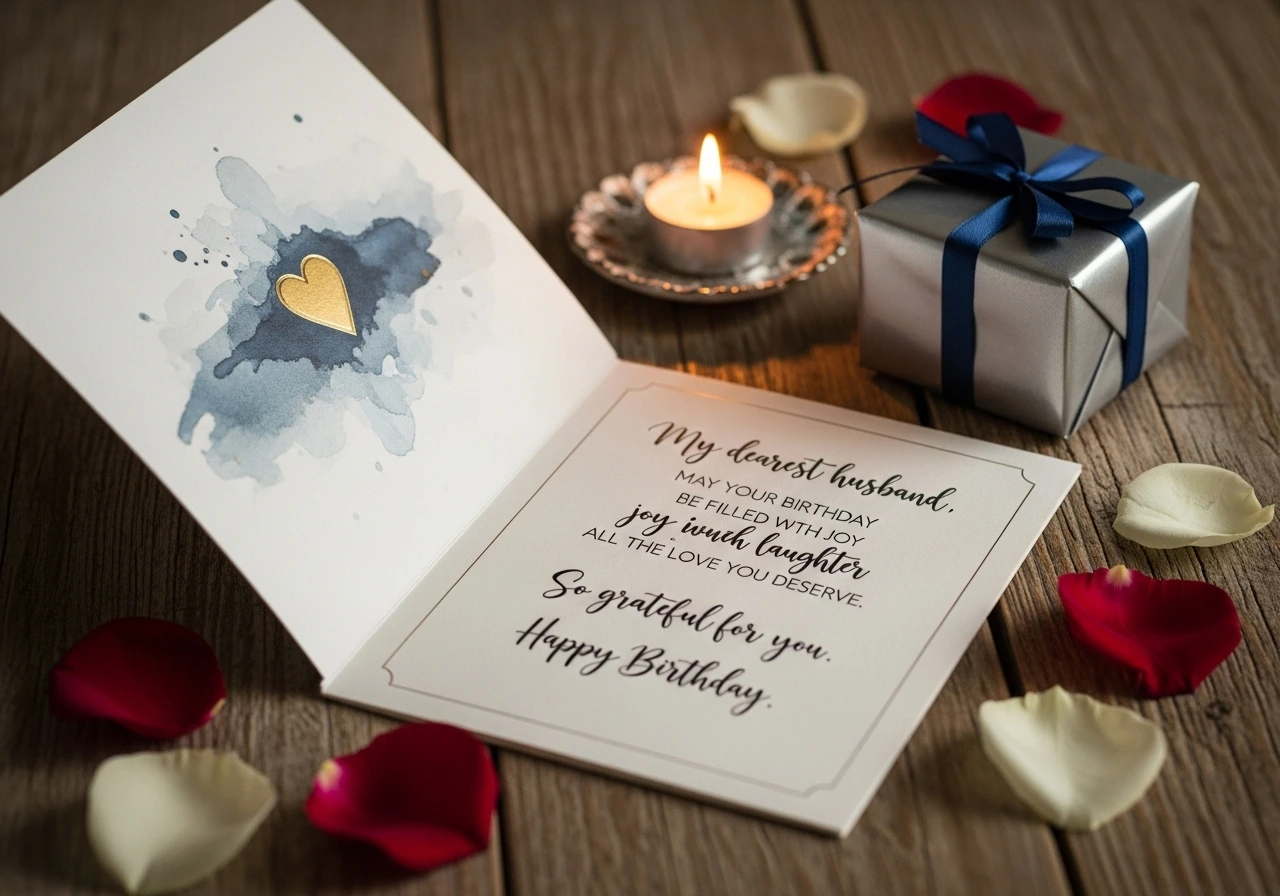 My dearest husband,
MAY YOUR BIRTHDAY
BE FILLED WTH JOY
joy iwuch laughter
ALL THE LOVE YOU DESERVE.
So grateful for you.
Happy Birthday.